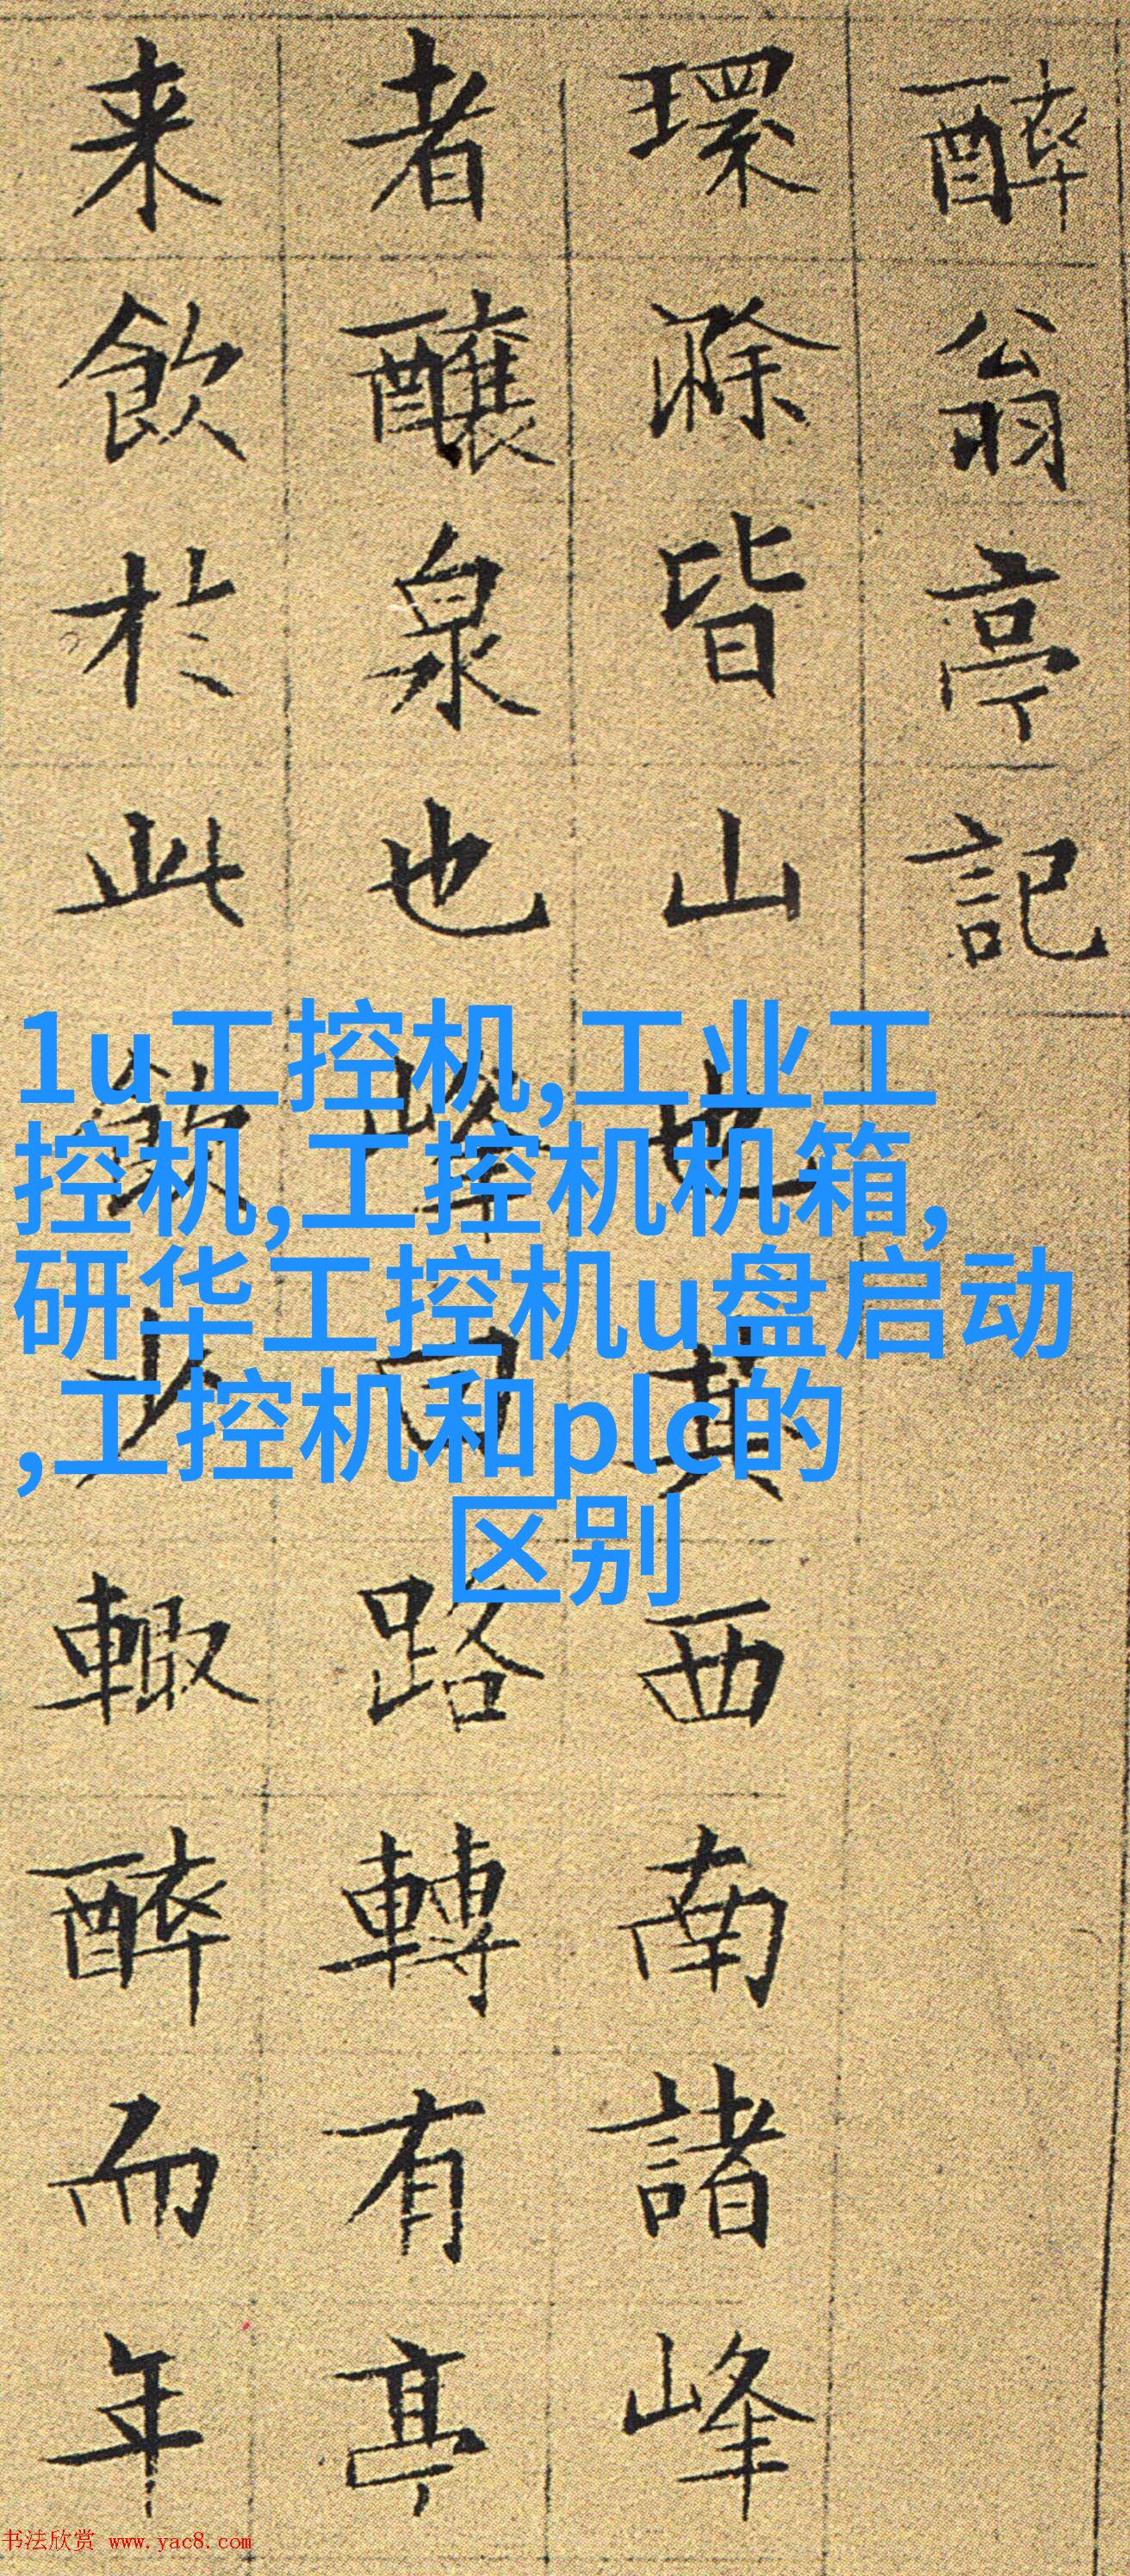 醉翁亭記
環滁皆山也其西南諸峰
者釀泉也峰回路轉有亭
来飲於此飲少輒醉而年
1u工控机,工业工
控机,工控机机箱,
研华工控机u盘启动
,工控机和plc的
区别
书法欣赏 www.yac8.com